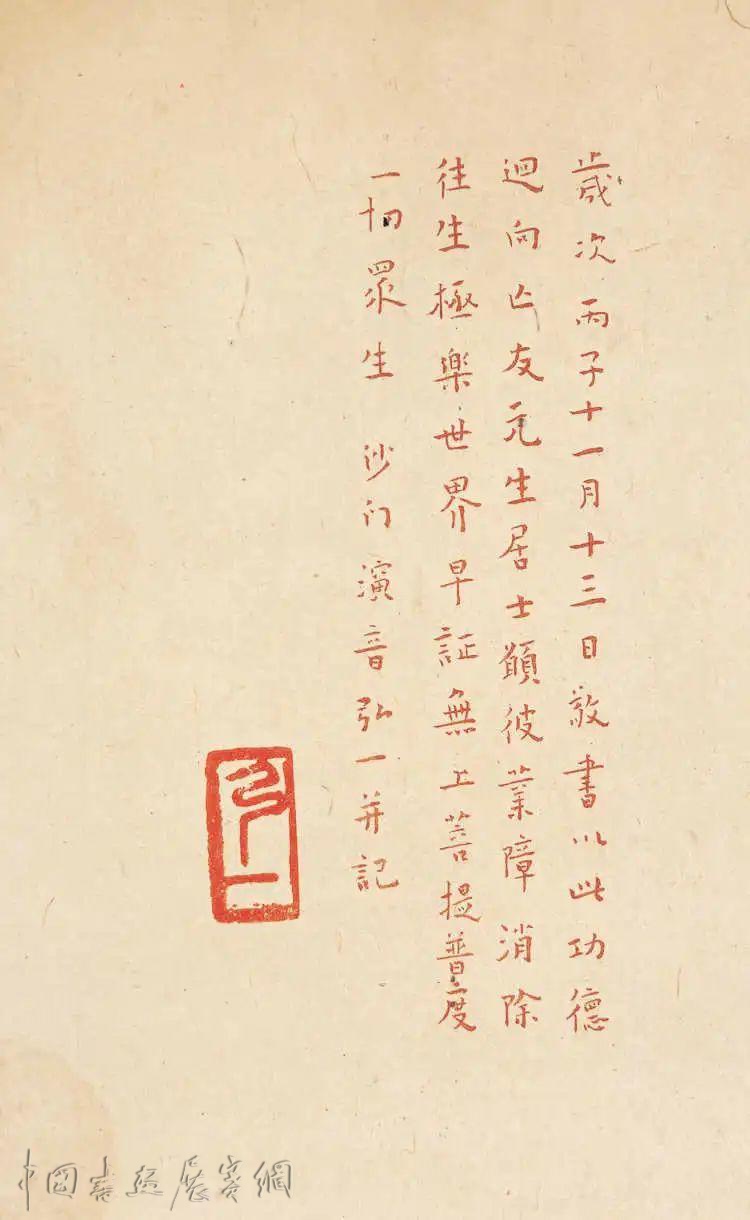 歲次丙子十一月十三日敬書以此功德
迴向亡友元生居士願彼業障消除
往生極樂世界早証無上菩提普度
一切眾生 沙门演音弘一并記
弘一
中国書画展賽網